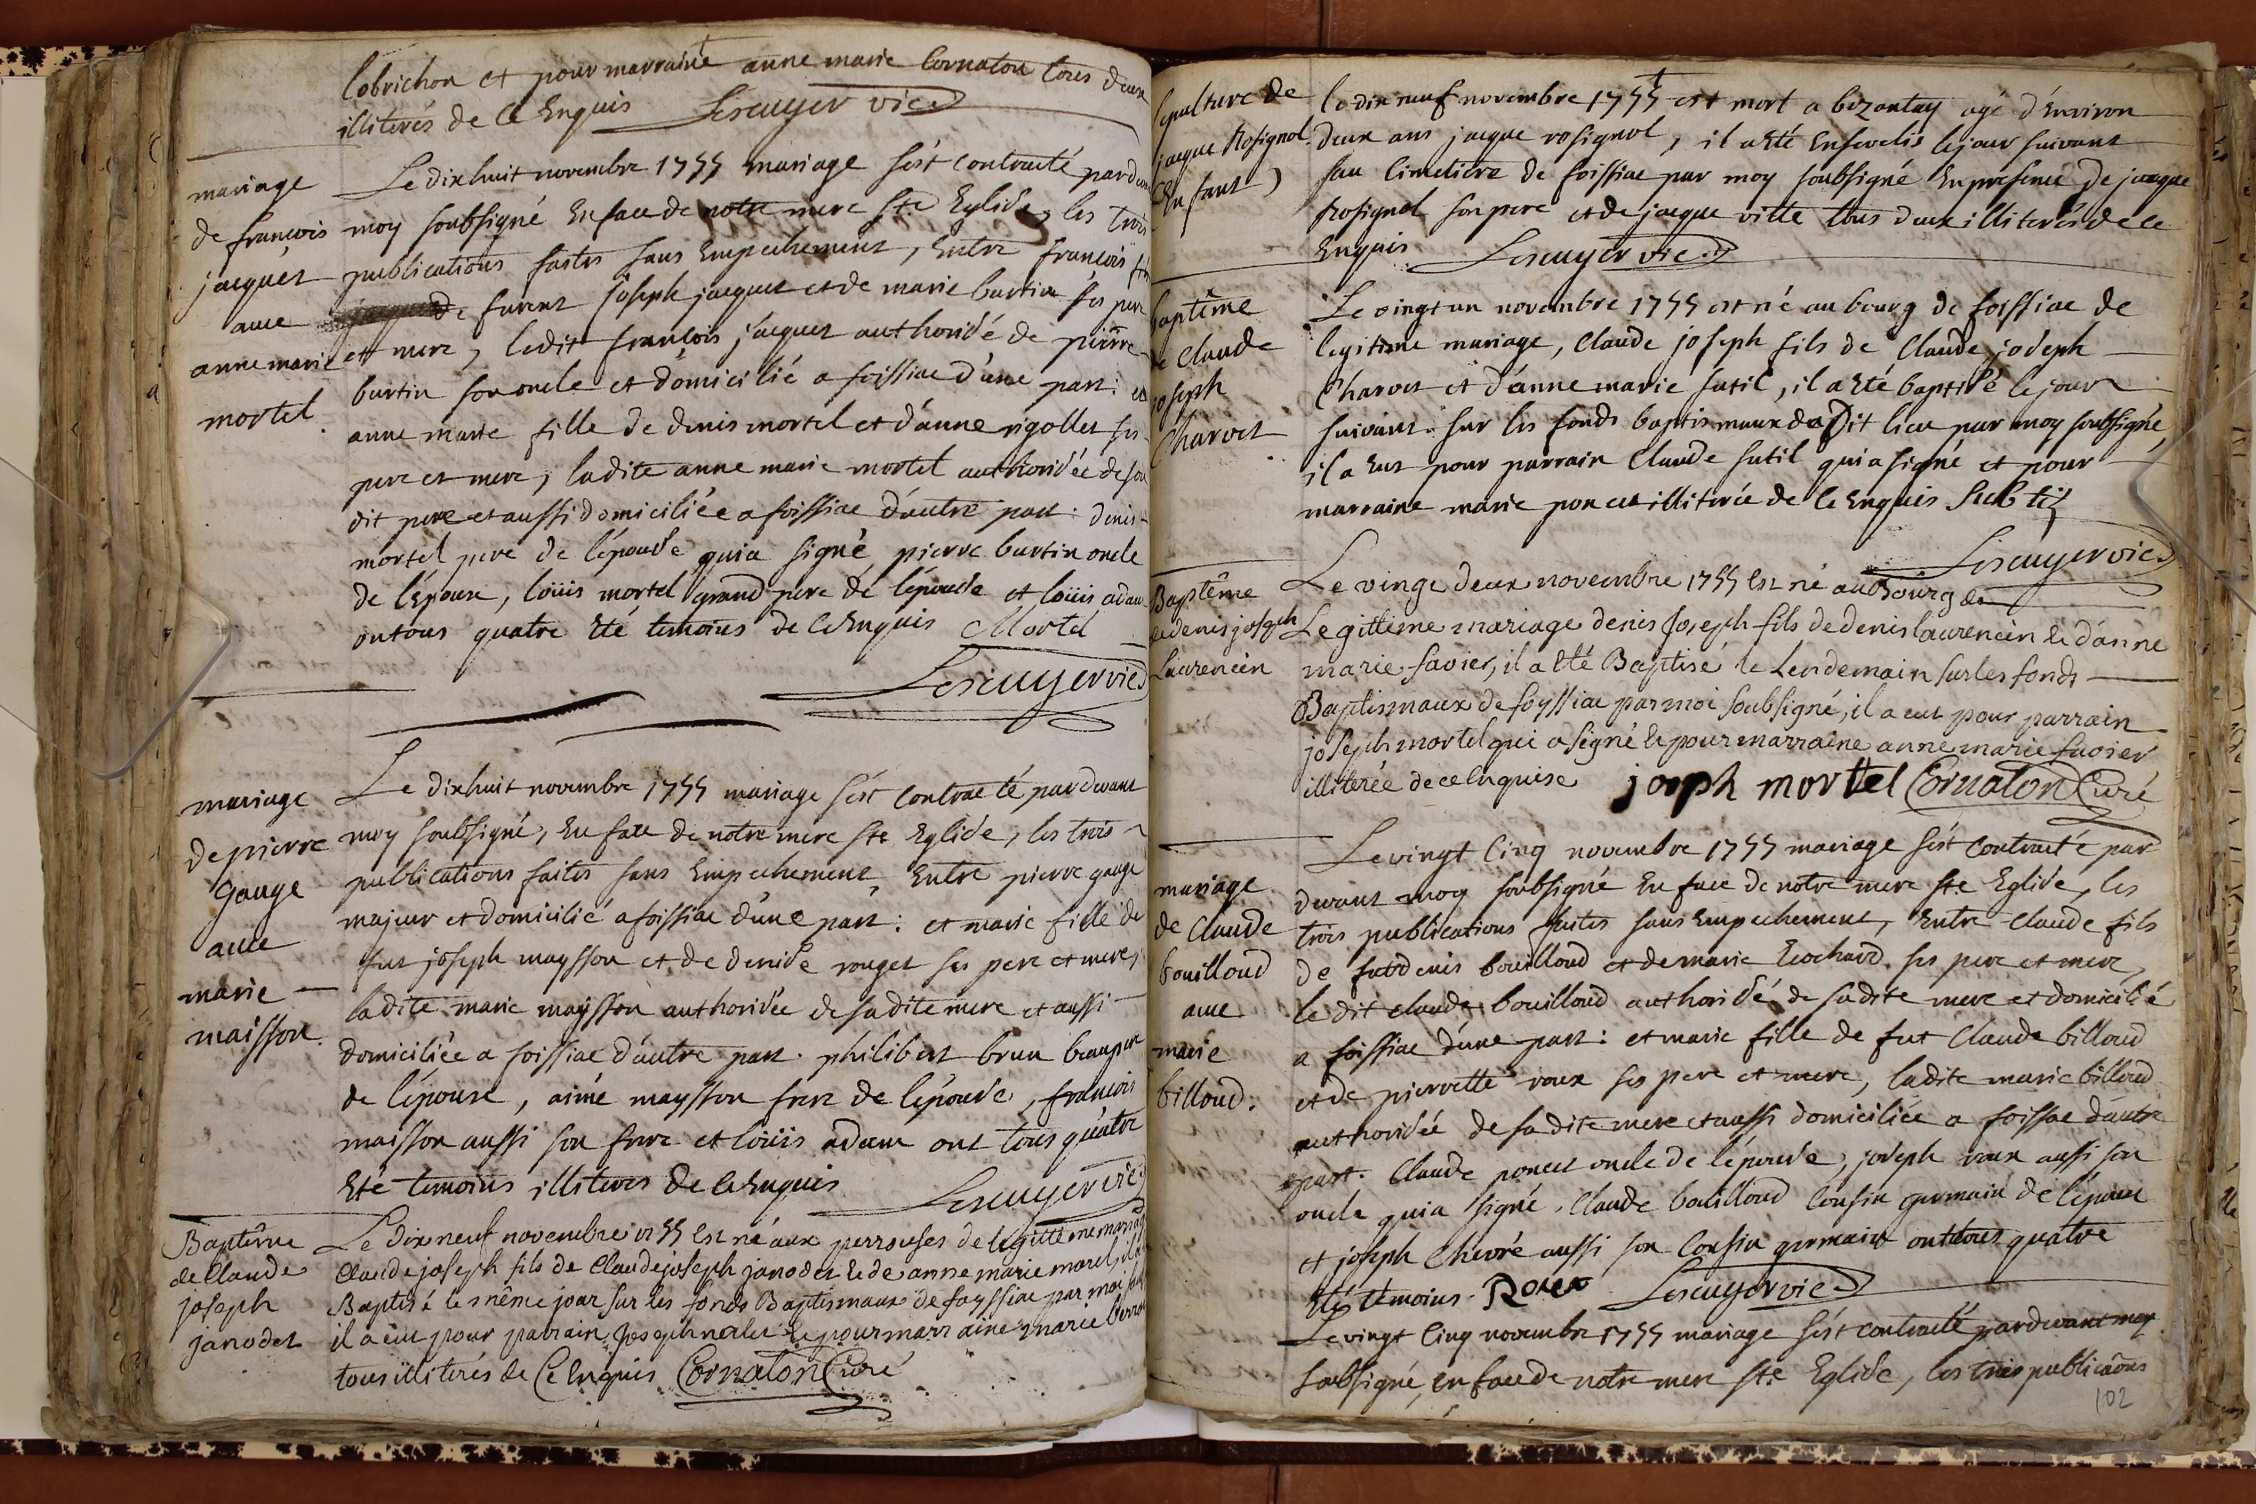 Cobrichon et pour marraine anne marie Cornaton tous deux
illiterés de ce Enquis Lescuyer vic
mariage
de francois
jacquet
avec
anne marie
mortel
Le dixhuit novembre 1755 mariage s'ést contracté pardevant
moy soubsigné En face de notre mere ste Eglide, les trois
publications faites sans Empechement, Entre francois fils
de furent Joseph jacquet et de marie burtin ses pere
et mere, ledit francois jacquet authoridé de pierre
burtin son oncle et domicilié a foissiac d'une part: et
anne marie fille de denis mortel et d'anne rigollet ses
pere et mere, ladite anne marie mortel authoridée de son
dit pere et aussi domiciliée a foissiac d'autre part: denis
mortel pere de l'épouse qui a signé, pierre burtin oncle
de l'époux, loüis mortel grand pere de l'épouse et loüis adam
ont tous quatre Eté temoins de ce Enquis Mortel
Lescuyer vic
mariage
de pierre
gauge
avec
marie
maisson
Le dixhuit novembre 1755 mariage s'ést contracté pardevant
moy soubsigné, En face de notre mere ste Eglide, les trois
publications faites sans Empechement, Entre pierre gauge
majeur et domicilié a foissiac d'une part: et marie fille de
fut joseph maysson et de denide rouget ses pere et mere,
ladite marie maysson authoridée de sadite mere et aussi
domiciliée a foissiac d'autre part. philibert brun beaupere
de l'époux, aimé maysson frere de l'épouse, francois
maisson aussi son frere et loüis adam ont tous quatre
Eté temoins illiteres de ce Enquis Lescuyer vic
Baptême
de Claude
joseph
janodet
Le dix neuf novembre 1755 Est né aux perrouses de legittime mariage
Claude joseph fils de Claude joseph janodet & de anne marie morel, il a
Baptisé le même jour sur les fonds Baptismaux de foyssiac par moi
il a eut pour parrain Joseph & pour marraine marie
tous illiterés de Ce Enquis Cornaton Curé
sepulture de
jacque Rosignol
(Enfant)
le dix neuf novembre 1755 est mort a bezantay agé d'Environ
deux ans jacque rosignol, il a Eté Enseveli le jour suivant
au Cimetiere de foissiac par moy soubsigné En presence de jacque
Rosignol son pere et de jacque ville tous deux illiterés de ce
Enquis Lescuyer vic
baptême
de Claude
joseph
Charvet
Le vingt un novembre 1755 est né au bourg de foissiac de
legitime mariage, Claude joseph fils de Claude joseph
Charvet et d'anne marie sutil, il a Eté baptisé le jour
suivant sur les fonds baptismaux dudit lieu par moy soubsigné,
il a Eut pour parrain Claude sutil qui a signé et pour
marraine marie poncet illiterée de ce Enquis Subtil
Lescuyer vic
Baptême
de denis joseph
Laurencin
Le vingt deux novembre 1755 Est né au Bourg de
Legittime mariage denis Joseph fils de denis laurencin & d'anne
marie favier, il a Eté Baptisé le Lendemain sur les fonds
Baptismaux de foyssiac par moi soubsigné, il a eut pour parrain
joseph mortel qui a signé & pour marraine anne marie favier
illiterée de ce enquise joseph mortel Cornaton Curé
mariage
de Claude
bouilloud
avec
marie
billoud.
Le vingt Cinq novembre 1755 mariage s'ést contracté par
devant moy soubsigné En face de notre mere ste Eglide, les
trois publications faites sans Empechement, Entre Claude fils
de fut denis bouilloud et de marie Rochard ses pere et mere,
le dit claude bouilloud authoridé de sadite mere et domicilié
a foissiac d'une part: et marie fille de fut Claude billoud
et de pierrette roux ses pere et mere, ladite marie billoud
authoridée de sadite mere et aussi domiciliée a foissac d'autre
part. Claude poncet oncle de l'épouse, joseph roux aussi son
oncle qui a signé, Claude bouilloud Cousin germain de l'époux
et joseph Chevré aussi son Cousin germain ont tous quatre
Etés temoins. Roux Lescuyer vic
Le vingt Cinq novembre 1755 mariage s'ést contracté pardevant moy
soubsigné, en face de notre mere ste Eglide, les trois publicaons
102